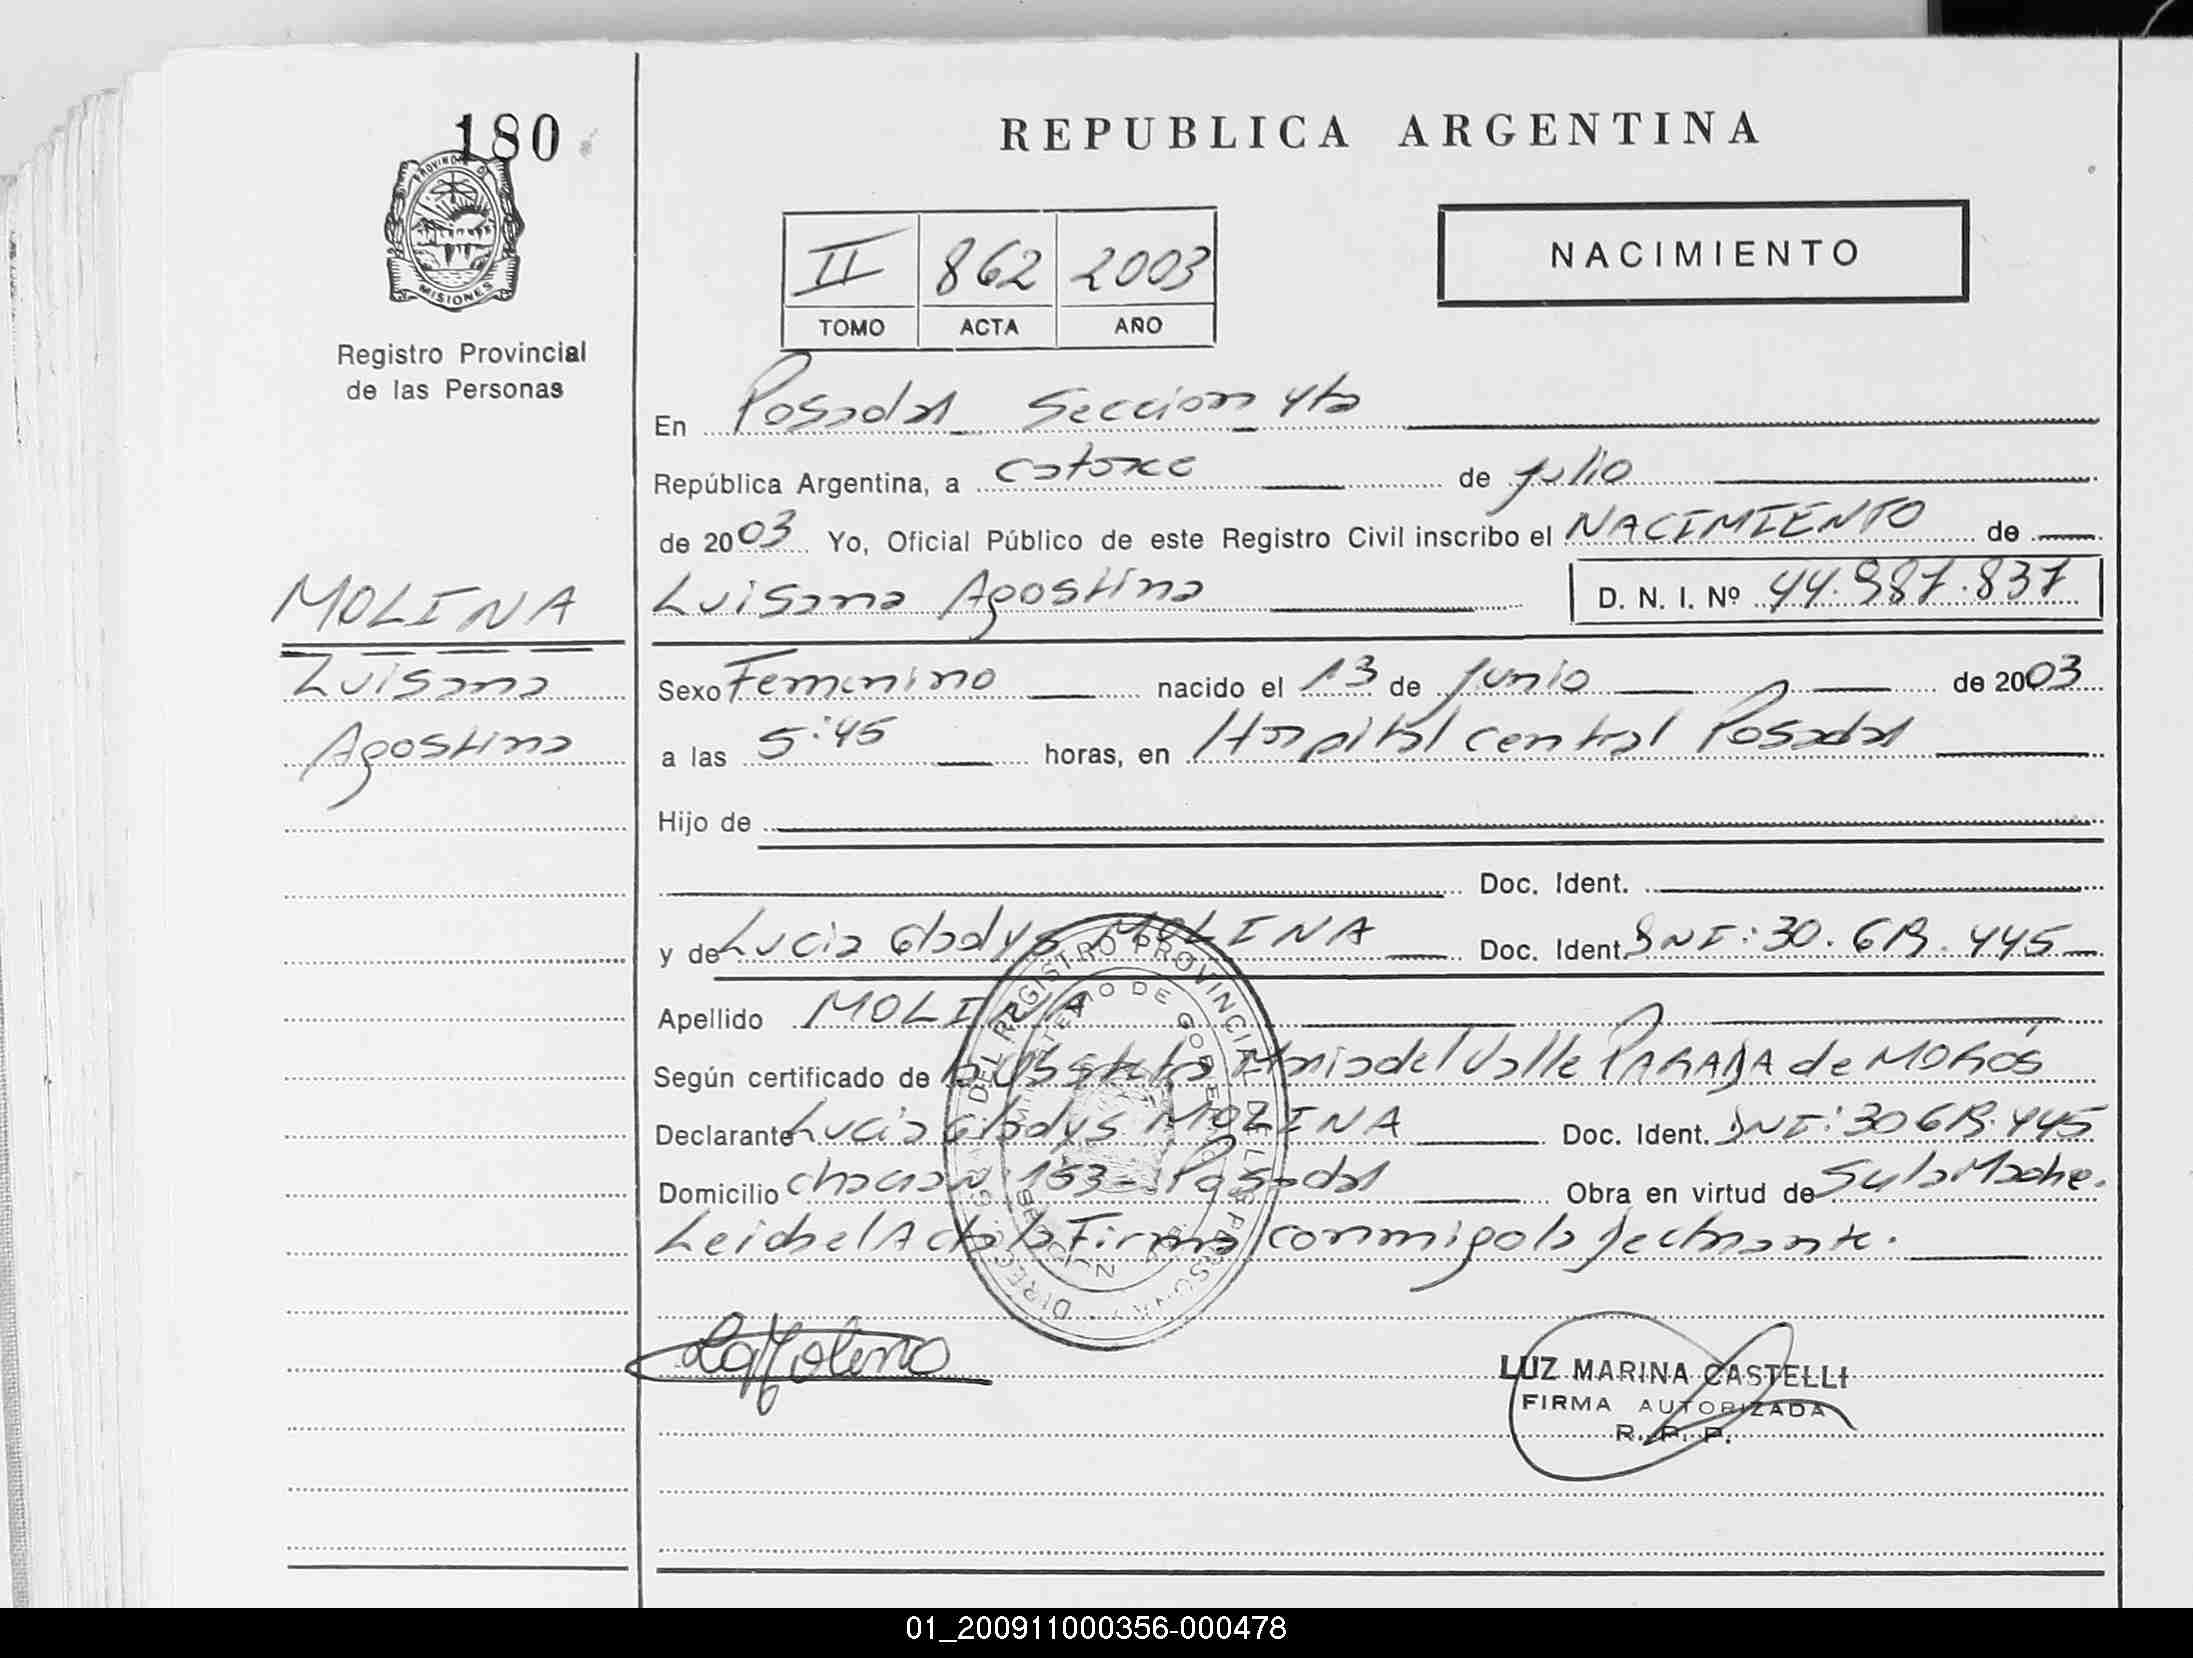 180
PROVINCIA DE
MISIONES
Registro Provincial
de las Personas
MOLINA
Luisana
Agostina
REPUBLICA ARGENTINA
NACIMIENTO
II 862 2003
TOMO ACTA AÑO
En Posadas Seccion 4ta
República Argentina, a catorce de julio
de 2003 Yo, Oficial Público de este Registro Civil inscribo el NACIMIENTO de
Luisana Agostina D. N. I. Nº 44.987.837
Sexo Femenino nacido el 13 de Junio de 2003
a las 5:45 horas, en Hospital central Posadas
Hijo de
Doc. Ident.
y de Lucia Gladys MOLINA Doc. Ident. DNI: 30.    .445
Apellido MOLINA
Según certificado de Maria del Valle PARADA de MORÓS
Declarante Lucia Gladys MOLINA Doc. Ident. DNI: 30    .445
Domicilio chacra N 153 - Posadas Obra en virtud de Ser la Madre.
Leida el Acta la Firma conmigo la declarante.
DEL REGISTRO PROVINCIAL DE LAS PERSONAS
LUZ MARINA CASTELLI
FIRMA AUTORIZADA
R. P. P.
01_200911000356-000478